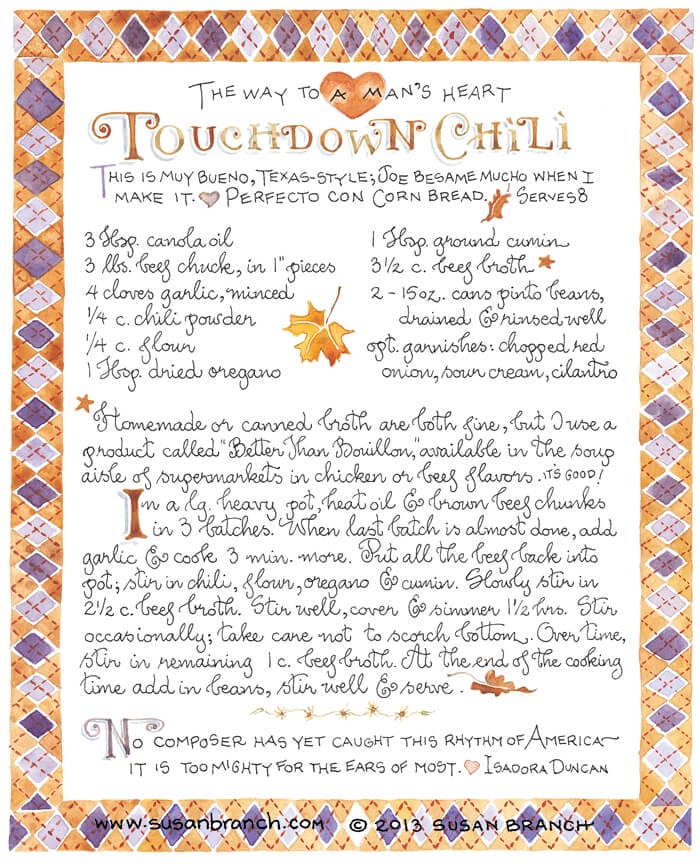 THE WAY TO A MAN'S HEART
TOUCHDOWN CHILI
THIS IS MUY BUENO, TEXAS-STYLE; JOE BESAME MUCHO WHEN I
MAKE IT. PERFECTO CON CORN BREAD. SERVES 8
3 Tbsp. canola oil
3 lbs. beef chuck, in 1" pieces
4 cloves garlic, minced
1/4 c. chili powder
1/4 c. flour
1 Tbsp. dried oregano
1 Tbsp. ground cumin
3 1/2 c. beef broth *
2 - 15 oz. cans pinto beans,
drained & rinsed well
opt. garnishes: chopped red
onion, sour cream, cilantro
* Homemade or canned broth are both fine, but I use a
product called "Better Than Bouillon," available in the soup
aisle of supermarkets in chicken or beef flavors. IT'S GOOD!
In a lg. heavy pot, heat oil & brown beef chunks
in 3 batches. When last batch is almost done, add
garlic & cook 3 min. more. Put all the beef back into
pot; stir in chili, flour, oregano & cumin. Slowly stir in
2 1/2 c. beef broth. Stir well, cover & simmer 1 1/2 hrs. Stir
occasionally; take care not to scorch bottom. Over time,
stir in remaining 1 c. beef broth. At the end of the cooking
time add in beans, stir well & serve.
NO COMPOSER HAS YET CAUGHT THIS RHYTHM OF AMERICA—
IT IS TOO MIGHTY FOR THE EARS OF MOST. ISADORA DUNCAN
www.susanbranch.com © 2013 SUSAN BRANCH